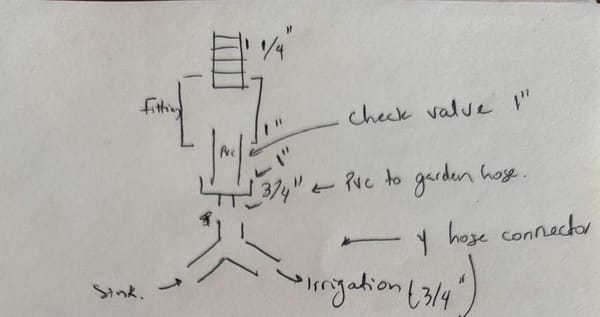 1 1/4"
Fitting
1"
check valve 1"
Pvc
1"
3/4" ← Pvc to garden hose.
← y hose connector
Sink. → → Irrigation (3/4")